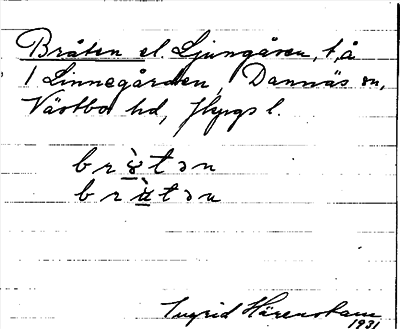 Bråten el. Ljungåsen, t, å
1 Linnegården, Dannäs sn,
Västbo hd, Jkpgs l.
brɤ̀tən
brⱥ̀tən
Ingrid Härenstam
1931